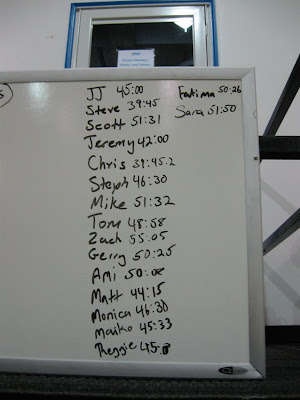 JJ 45:00
Steve 39:45
Scott 51:31
Jeremy 42:00
Chris 39:45.2
Steph 46:30
Mike 51:32
Tom 48:58
Zach 55:05
Gerry 50:25
Ami
Matt 44:15
Monica 46:30
Mariko 45:33
Reggie
Fatima 50:26
Sara 51:50